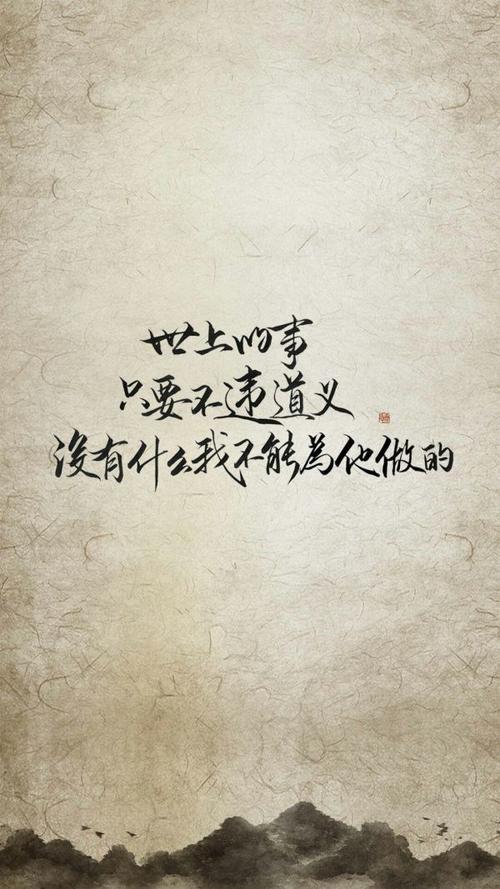 世上的事
只要不违道义
没有什么我不能為他做的